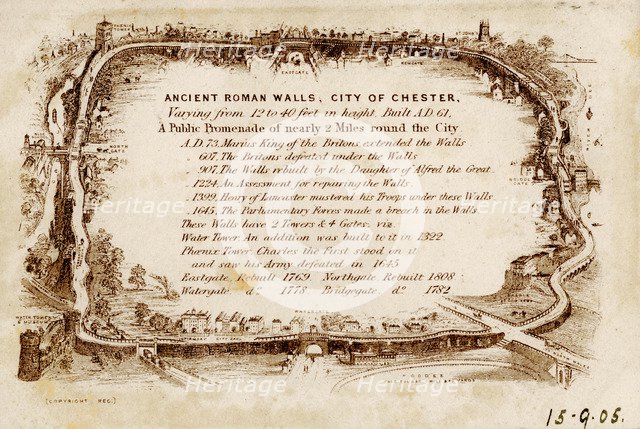 PHOENIX TOWER
EASTGATE
NEWGATE
NORTH GATE
ANCIENT ROMAN WALLS, CITY OF CHESTER,
Varying from 12 to 40 feet in height. Built A.D. 61,
A Public Promenade of nearly 2 Miles round the City
A.D. 73, Marius King of the Britons extended the Walls
„ 607, The Britons defeated under the Walls
„ 907, The Walls rebuilt by the Daughter of Alfred the Great
„ 1224, An Assessment for repairing the Walls.
„ 1399, Henry of Lancaster mustered his Troops under these Walls
„ 1645, The Parliamentary Forces made a breach in the Walls
These Walls have 2 Towers & 4 Gates: viz
Water Tower An addition was built to it in 1322
Phœnix Tower Charles the First stood on it
and saw his Army defeated in 1645
Eastgate Rebuilt 1769 Northgate Rebuilt 1808
Watergate dº 1778 Bridgegate dº 1782
BRIDGE GATE
WATER TOWER & MUSEUM
WATERGATE
(COPYRIGHT REG.)
15-9-05.
Heritage
Heritage
Heritage
Heritage
Heritage
Heritage
Heritage
Heritage
Heritage
Images